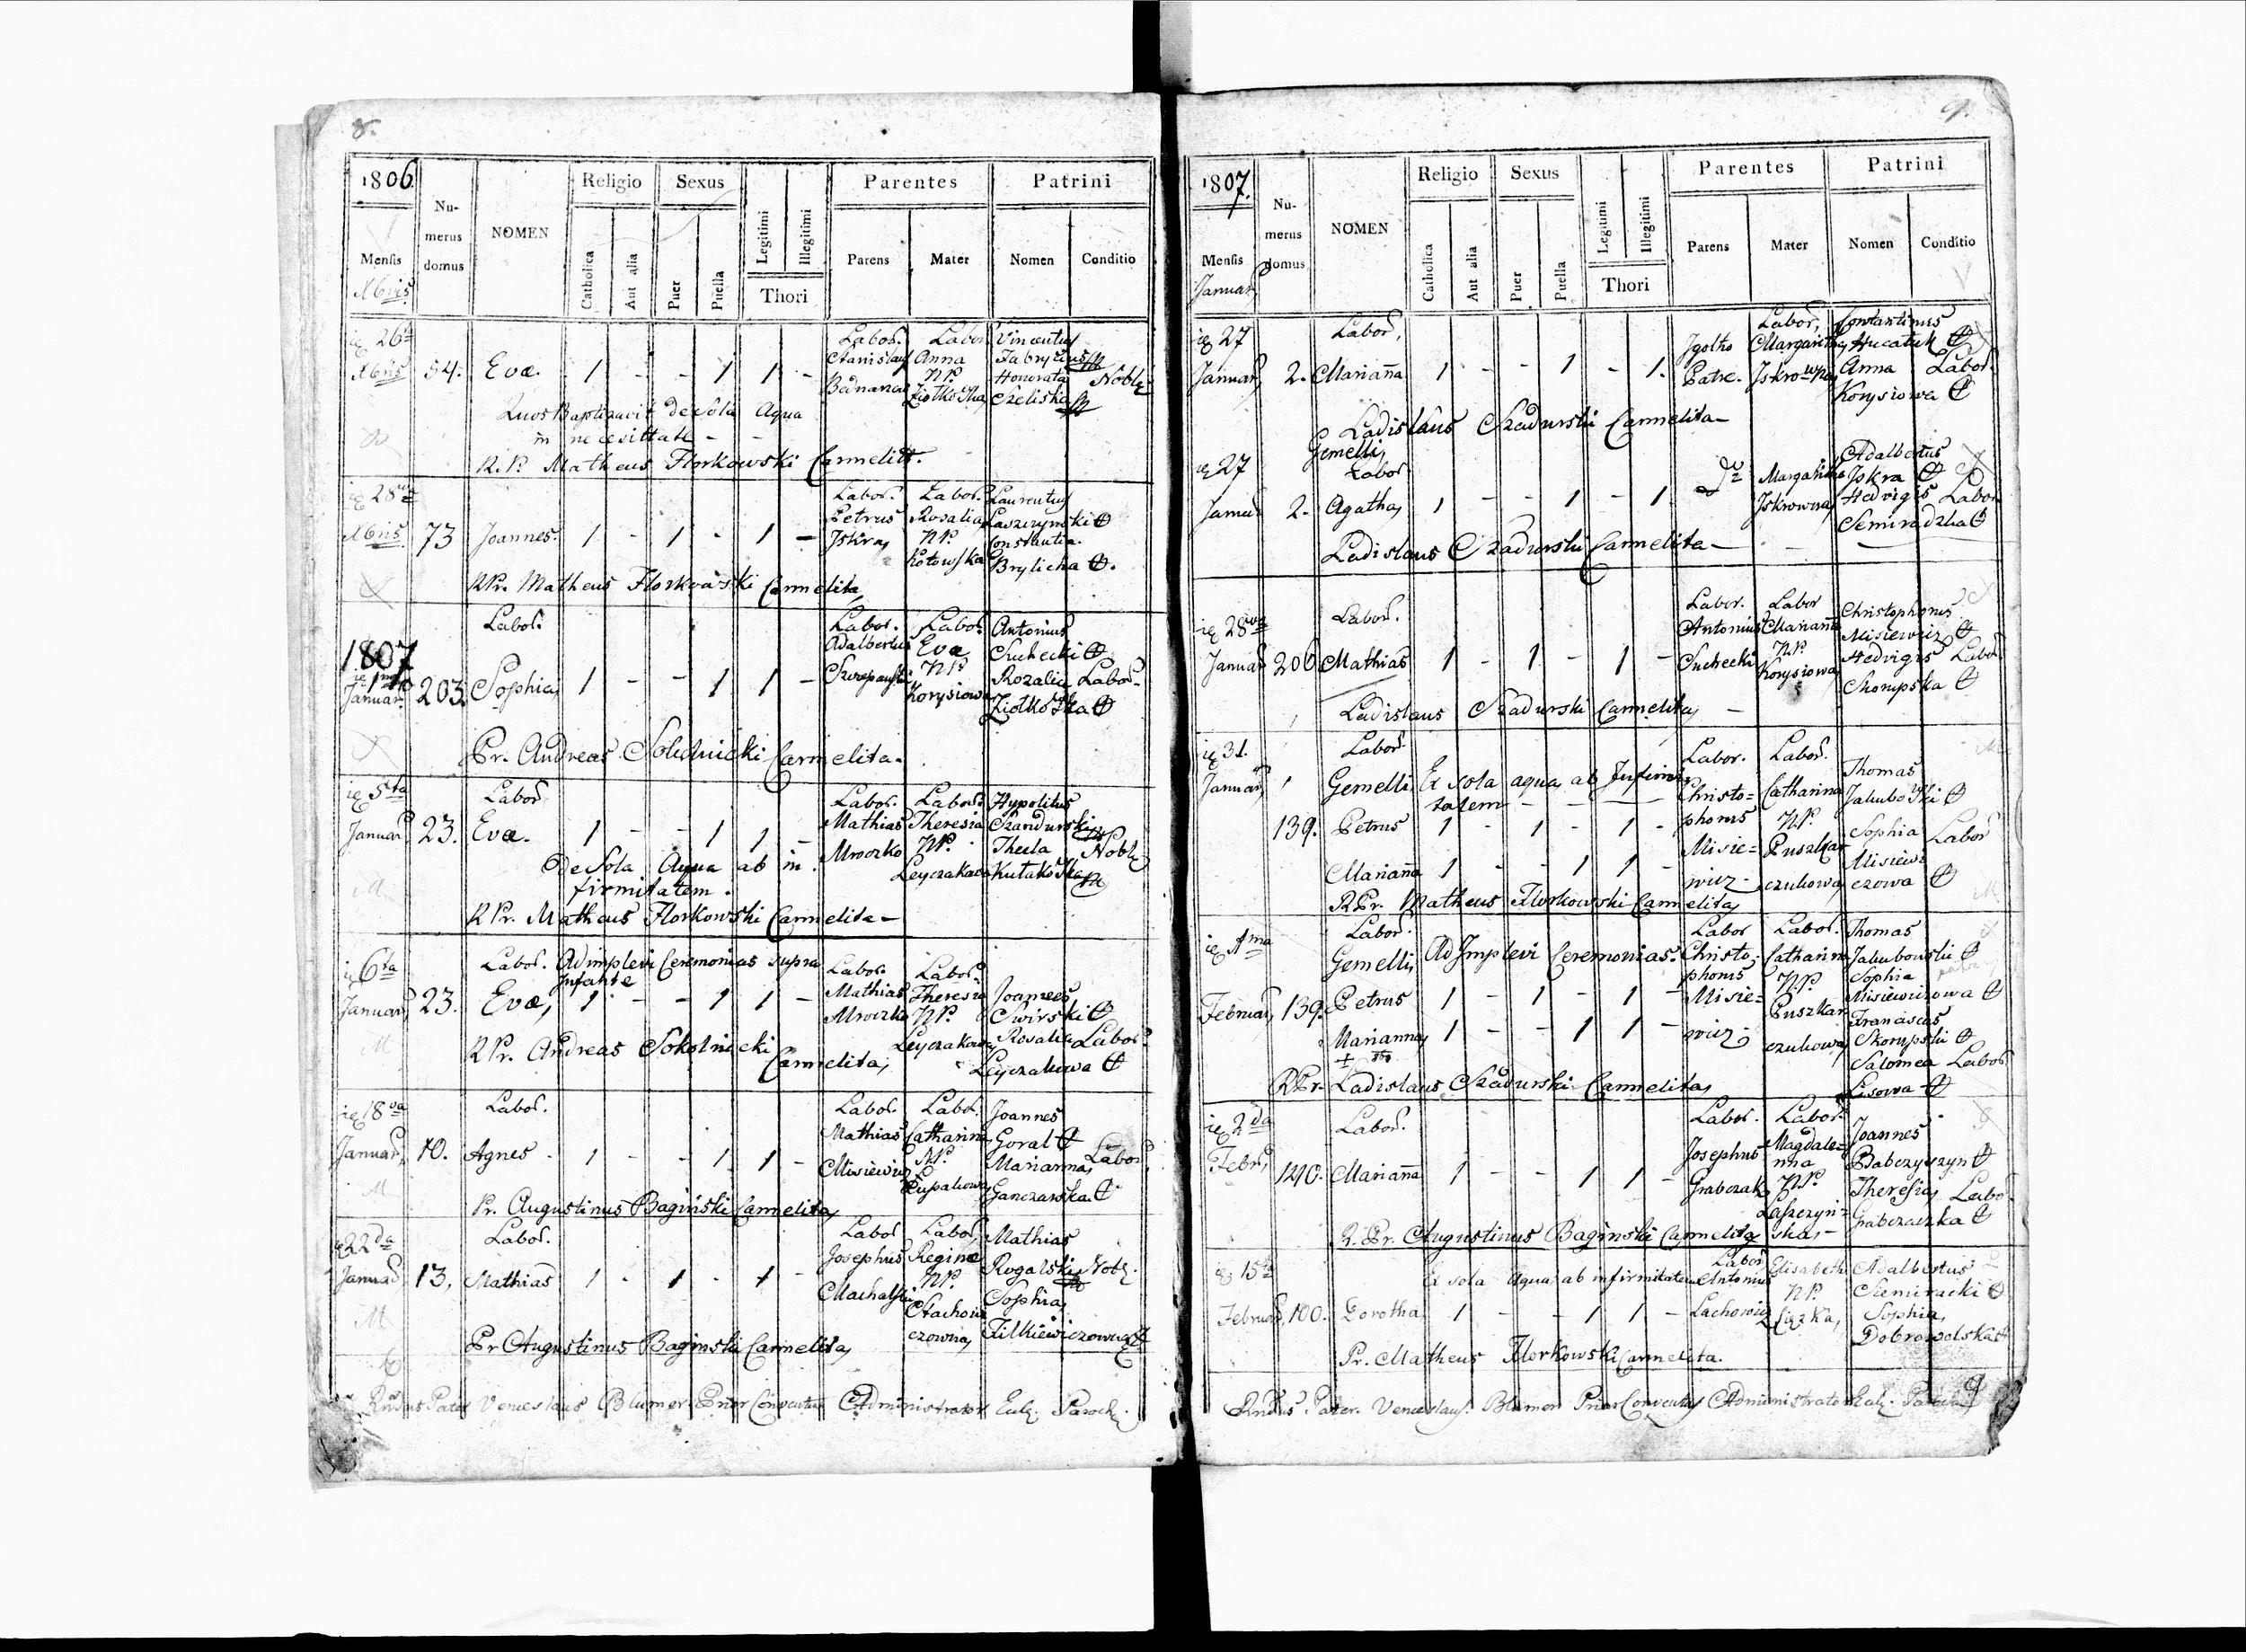 8.
1806
Mensis
Xbris
Numerus domus
NOMEN
Religio
Catholica
Aut alia
Sexus
Puer
Puella
Legitimi
Illegitimi
Thori
Parentes
Parens
Mater
Patrini
Nomen
Conditio
26ta Xbris 54. Eva. 1 - - 1 1 -
Labor. Stanislaus Bednarczyk
Labor. Anna NP.
Vincentius Fabrycius
Honorata Nobl.
Quos Baptizavit de sola Aqua
in necessitate - -
R.P. Matheus Florkowski Carmelit.
28va Xbris 73 Joannes. 1 - 1 - 1 -
Labor. Petrus Jskra
Labor. Rosalia NP. Kotowska
Laurentius Laszczynski
Constantia Brylicha
RPr. Matheus Florkowski Carmelita
1807
1ma Januar. 203. Labor. Sophia, 1 - - 1 1 -
Labor. Adalbertus
Labor. Eva NP Korysiowa
Antonius Suchecki
Rozalia Labor.
Ziolkoska
Pr. Andreas Carmelita.
5ta Januar. 23. Labor. Eva. 1 - - 1 1 -
Labor. Mathias Mroczko
Labor. Theresia NP. Leyczakowa
Hypolitus
Thecla Nobl.
de Sola Aqua ab in
firmitatem.
RPr. Matheus Florkowski Carmelita -
6ta Januar. 23. Labor. Adimplevi Ceremonias supra
Infante
Eva, 1 - - 1 1 -
Labor. Mathias Mroczko
Labor. Theresia NP. Leyczakowa
Joannes Swirski
Rosalia Labor.
Leyczakowa
RPr. Andreas Sokolnicki Carmelita,
18va Januar. 10. Labor. Agnes - 1 - - 1 1 -
Labor. Mathias Misiewicz
Labor. Catharina NP.
Joannes Goral
Marianna, Labor.
Ganczarska
Pr. Augustinus Baginski Carmelita,
22da Januar. 13, Labor. Mathias 1 - 1 - 1 -
Labor Josephus Machalski
Labor, Regina NP. Stachowiczowna,
Mathias Rogalski Nobl.
Sophia,
Pr Augustinus Baginski Carmelita,
Rndus Pater Venceslaus Blumer Prior Conventus Administrator Eccl. Paroch.
9.
1807.
Mensis
Januar.
Numerus domus
NOMEN
Religio
Catholica
Aut alia
Sexus
Puer
Puella
Legitimi
Illegitimi
Thori
Parentes
Parens
Mater
Patrini
Nomen
Conditio
27 Januar. 2. Labor, Marianna 1 - - 1 - 1.
Patre.
Labor, Margaritha
Constantinus Hucaluk
Anna Labor.
Korysiowa
Ladislaus Szadurski Carmelita -
27 Januar 2. Gemelli, Labor Agatha, 1 - - 1 - 1
Margaritha Jskrowna,
Adalbertus Jskra
Hedvigis Labor.
Semiradzka
Ladislaus Szadurski Carmelita -
28va Januar 206 Labor. Mathias 1 - 1 - 1 -
Labor. Antonius Suchecki
Labor Marianna NP Korysiowa
Christophorus Misiewicz
Hedvigis Labor
Skompska
Ladislaus Szadurski Carmelita, -
31. Januar, Labor.
Gemelli Ex sola aqua, ab Infirmi
tatem - - -
139. Petrus 1 - 1 - 1 -
Marianna 1 - - 1 1 -
Labor. Christo=phorus Misie=wicz -
Labor. Catharina NP. Puszkarczukowa,
Thomas Jakubowski
Sophia Labor
Misiewiczowa
RPr. Matheus Florkowski Carmelita,
1ma Februar, 139. Labor. Gemelli, AdJmplevi Ceremonias.
Petrus 1 - 1 - 1 -
Marianna, 1 - - 1 1 -
Labor Christophorus Misie=wicz,
Labor. Catharina NP. Puszkarczukowa,
Thomas Jakubowski
Sophia Misiewiczowa
Franciscus Skompski
Salomea Labor
Lisowa
RPr. Ladislaus Szadurski Carmelita,
2da Febr, 140. Labor. Marianna 1 - - 1 1 -
Labor. Josephus Grabczak
Labor. Magdalenna NP. Laszczyn=ska, -
Joannes Babczyszyn
Theresia, Labo.
Grabczaszka
R. Pr. Augustinus Baginski Carmelita
15ta Februar, 100. Ex sola Aqua, ab infirmitatem
Dorotha 1 - - 1 1 -
Labor, Antonius Lachowicz
Elisabeth NP.
Adalbertus Siemiracki
Sophia, Dobrowolska
Pr. Matheus Florkowski Carmelita.
Rndus Pater. Venceslaus. Blumer Prior Conventus Administrator Eccl.
9